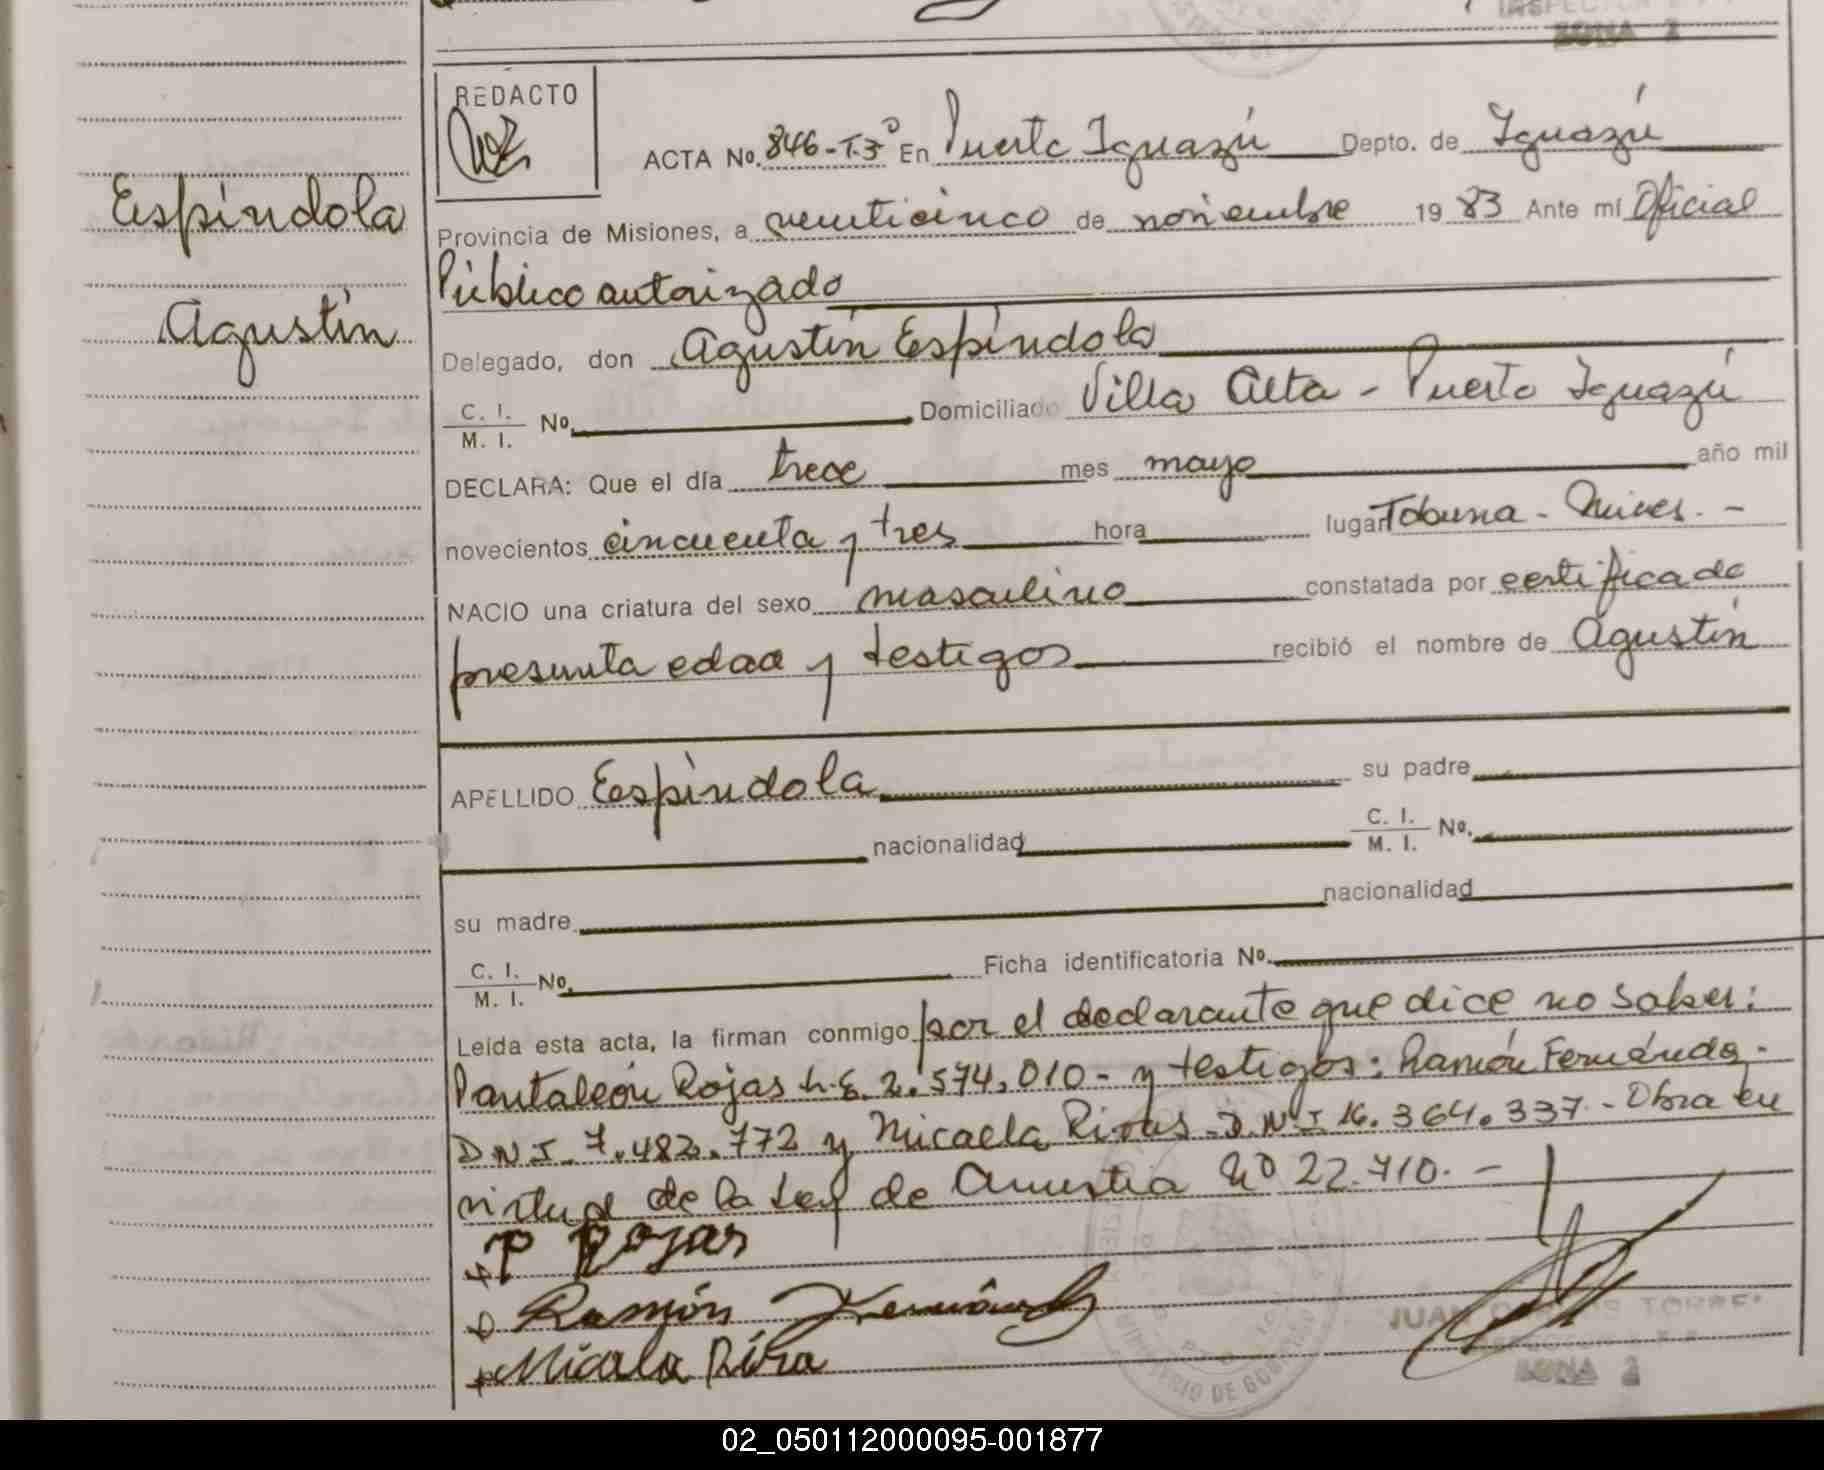 ZONA 2
REDACTO
ACTA No. 846-T.3º En Puerto Iguazú Depto. de Iguazú
Espíndola
Provincia de Misiones, a veinticinco de noviembre 1983 Ante mí Oficial
Público autorizado
Agustín
Delegado, don Agustín Espíndola
C. I. M. I. No. Domiciliado Villa Alta - Puerto Iguazú
DECLARA: Que el día trece mes mayo año mil
novecientos cincuenta y tres hora lugar Tobuna - Mnes. -
NACIO una criatura del sexo masculino constatada por certificado
presunta edad y testigos recibió el nombre de Agustín
APELLIDO Espíndola su padre
nacionalidad C. I. M. I. No.
su madre nacionalidad
C. I. M. I. No. Ficha identificatoria No.
Leída esta acta, la firman conmigo por el declarante que dice no saber:
Pantaleón Rojas L.E. 2.574.010 - y testigos: Ramón Fernández -
DNI 7.482.772 y Micaela Rivas - DNI 16.364.337 - Obra en
virtud de la Ley de Amnistia Nº 22.710. -
P Rojas
Ramón Fernández
Micala Riva
JUAN TORRES
ZONA 2
02_050112000095-001877